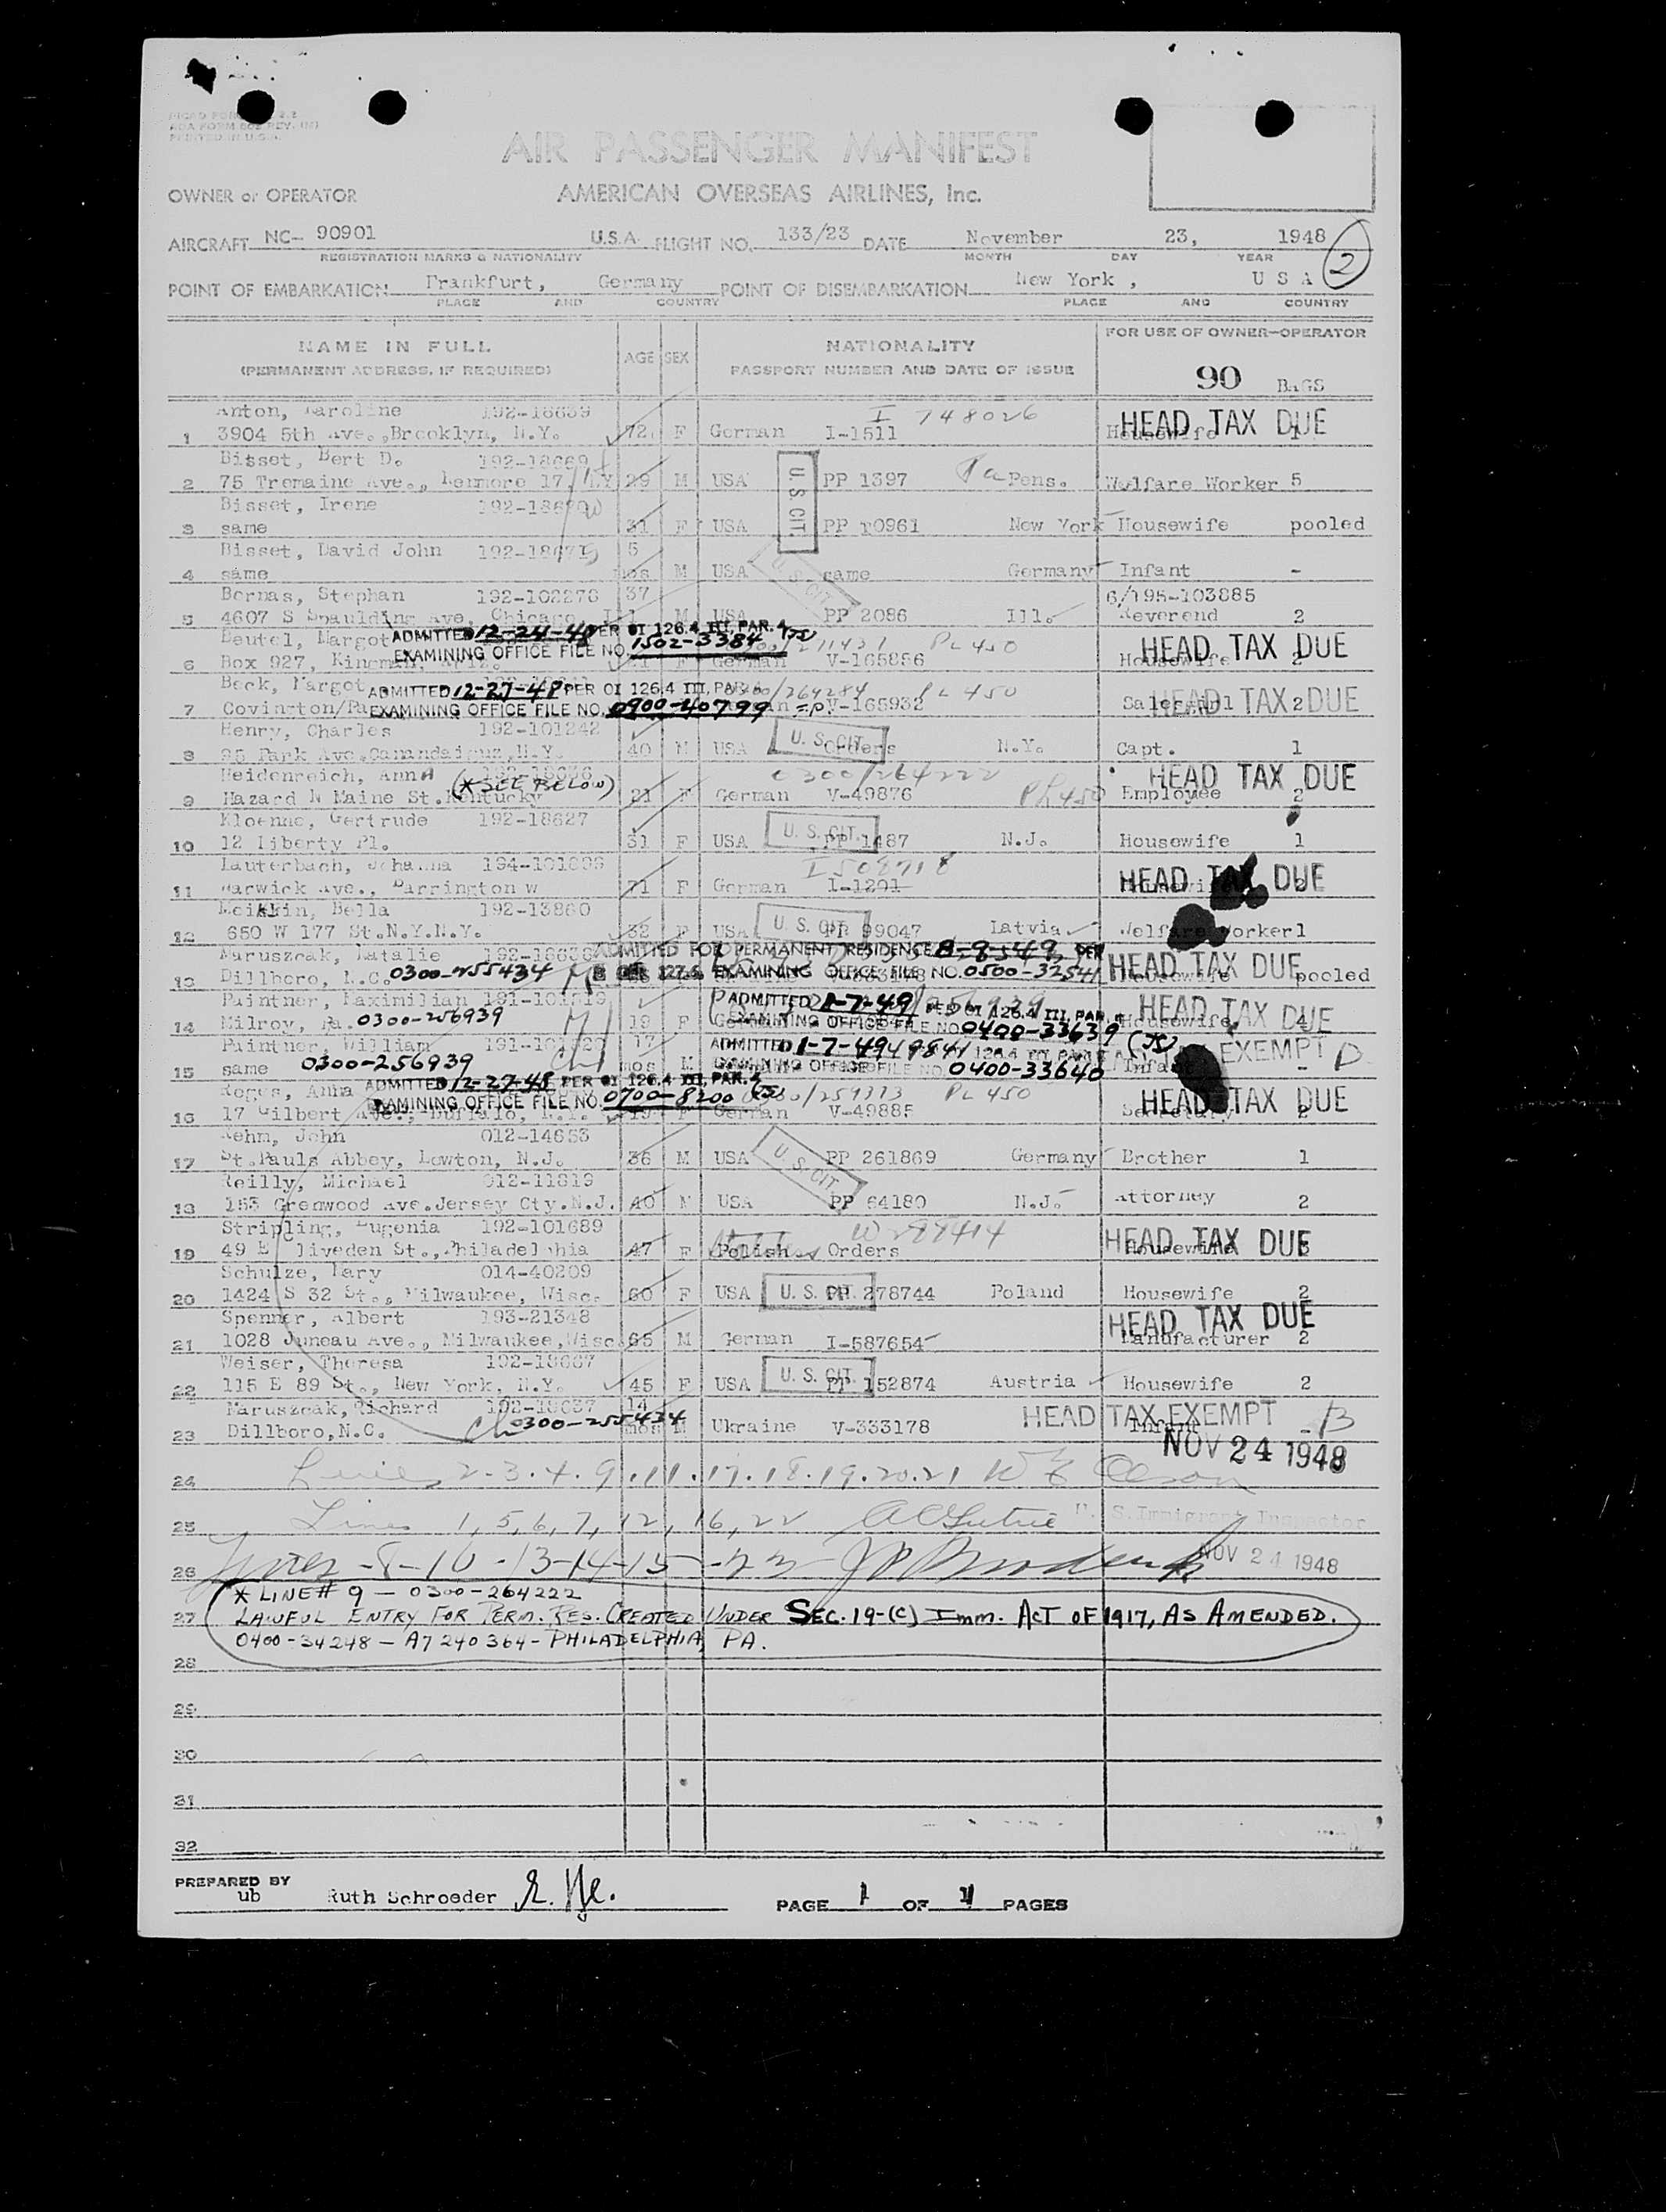 AIR PASSENGER MANIFEST
OWNER or OPERATOR AMERICAN OVERSEAS AIRLINES, Inc.
AIRCRAFT NC- 90901 U.S.A. FLIGHT NO. 133/23 DATE November 23, 1948
REGISTRATION MARKS & NATIONALITY MONTH DAY YEAR
2
POINT OF EMBARKATION Frankfurt, Germany POINT OF DISEMBARKATION New York, U S A
PLACE AND COUNTRY PLACE AND COUNTRY
FOR USE OF OWNER-OPERATOR
NAME IN FULL AGE SEX NATIONALITY
(PERMANENT ADDRESS, IF REQUIRED) PASSPORT NUMBER AND DATE OF ISSUE
90 BAGS
Anton, Karoline 192-18639 I 748026 HEAD TAX DUE
1 3904 5th Ave.,Brooklyn, N.Y. 72 F German I-1511 Housewife 1
Bisset, Bert D. 192-18669
2 75 Tremaine Ave., Kenmore 17, N.Y. 29 M USA U.S. CIT. PP 1397 Pa Pens. Welfare Worker 5
Bisset, Irene
3 same 31 F USA PP 10961 New York Housewife pooled
Bisset, David John 5
4 same mos M USA U.S. CIT. same Germany Infant -
Bernas, Stephan 192-102276 37 6/195-103885
5 4607 S Spaulding Ave, Chicago M USA PP 2086 Ill. Reverend 2
Beutel, Margot ADMITTED 12-24-48 PER OI 126.4 III, PAR. 4 PL 450 HEAD TAX DUE
EXAMINING OFFICE FILE NO. 1502-3384
6 Box 927, Kingman, F German V-165856 Housewife 2
Beck, Margot ADMITTED 12-27-48 PER OI 126.4 III, PAR. 4 0300/264284 PL 450
7 Covington/ EXAMINING OFFICE FILE NO. 0900-40799 V-165932 HEAD TAX DUE 2
Henry, Charles 192-101242
8 95 Park Ave. N.Y. 40 M USA U. S. CIT. Orders N.Y. Capt. 1
Heidenreich, Anna (* SEE BELOW) 0300/264222 HEAD TAX DUE
9 Hazard N Maine St. Kentucky 21 F German V-49876 PL 450 Employee 2
Kloenne, Gertrude 192-18627
10 12 Liberty Pl. 31 F USA U. S. CIT. PP 1487 N.J. Housewife 1
Lauterbach, Johanna I 508718 HEAD TAX DUE
11 Warwick Ave., Barrington 71 F German I-1291
Meikkin, Bella 192-13860
12 650 W 177 St.N.Y.N.Y. 32 F USA U. S. CIT. PP 99047 Latvia Welfare Worker 1
Maruszcak, Natalie 192-18636 ADMITTED FOR PERMANENT RESIDENCE 8-9-549 PER
13 Dillboro, N.C. 0300-255434 EXAMINING OFFICE FILE NO. 0500-32541 HEAD TAX DUE pooled
Paintner, Maximilian ADMITTED 1-7-49 PER OI 126.4 III, PAR. 4 HEAD TAX DUE
14 Milroy, Pa. 0300-256939 19 F EXAMINING OFFICE FILE NO. 0400-33639 Housewife
Paintner, William 17 ADMITTED 1-7-49 EXEMPT
15 same 0300-256939 mos M EXAMINING OFFICE FILE NO. 0400-33640 Infant -
Anna ADMITTED 12-27-48 PER OI 126.4 III, PAR. 4 PL 450
16 17 Gilbert Ave., Buffalo, N.Y. EXAMINING OFFICE FILE NO. 0700-8200 F German V-49885 HEAD TAX DUE Secretary 2
Rehm, John 012-14653
17 St.Pauls Abbey, Lowton, N.J. 36 M USA U.S. CIT. PP 261869 Germany Brother 1
Reilly, Michael 012-11819
18 153 Grenwood Ave.Jersey Cty.N.J. 40 M USA PP 64180 N.J. Attorney 2
Stripling, Eugenia 192-101689
19 49 E Cliveden St., Philadelphia 47 F Polish Orders HEAD TAX DUE Housewife
Schulze, Mary 014-40209
20 1424 S 32 St., Milwaukee, Wisc. 60 F USA U. S. CIT. PP 278744 Poland Housewife 2
Spenner, Albert 193-21348 HEAD TAX DUE
21 1028 Juneau Ave., Milwaukee,Wisc. 65 M German I-587654 Manufacturer 2
Weiser, Theresa 192-18667
22 115 E 89 St., New York, N.Y. 45 F USA U. S. CIT. PP 152874 Austria Housewife 2
Maruszcak, Richard 192-18637 14 HEAD TAX EXEMPT
23 Dillboro,N.C. 0300-255434 mos M Ukraine V-333178 Infant -
NOV 24 1948
24 Lines 2.3.4.9.11.17.18.19.20.21
25 Lines 1, 5, 6, 7, 12, 16, 22 U. S. Immigrant Inspector
26 Lines -8-10-13-14-15-23 NOV 24 1948
* LINE # 9 — 0300-264222
27 LAWFUL ENTRY FOR PERM. RES. CREATED UNDER SEC. 19-(C) IMM. ACT OF 1917, AS AMENDED.
0400-34248 — A7 240 364 - PHILADELPHIA, PA.
28
29
30
31
32
PREPARED BY
ub Ruth Schroeder
PAGE 1 OF 1 PAGES